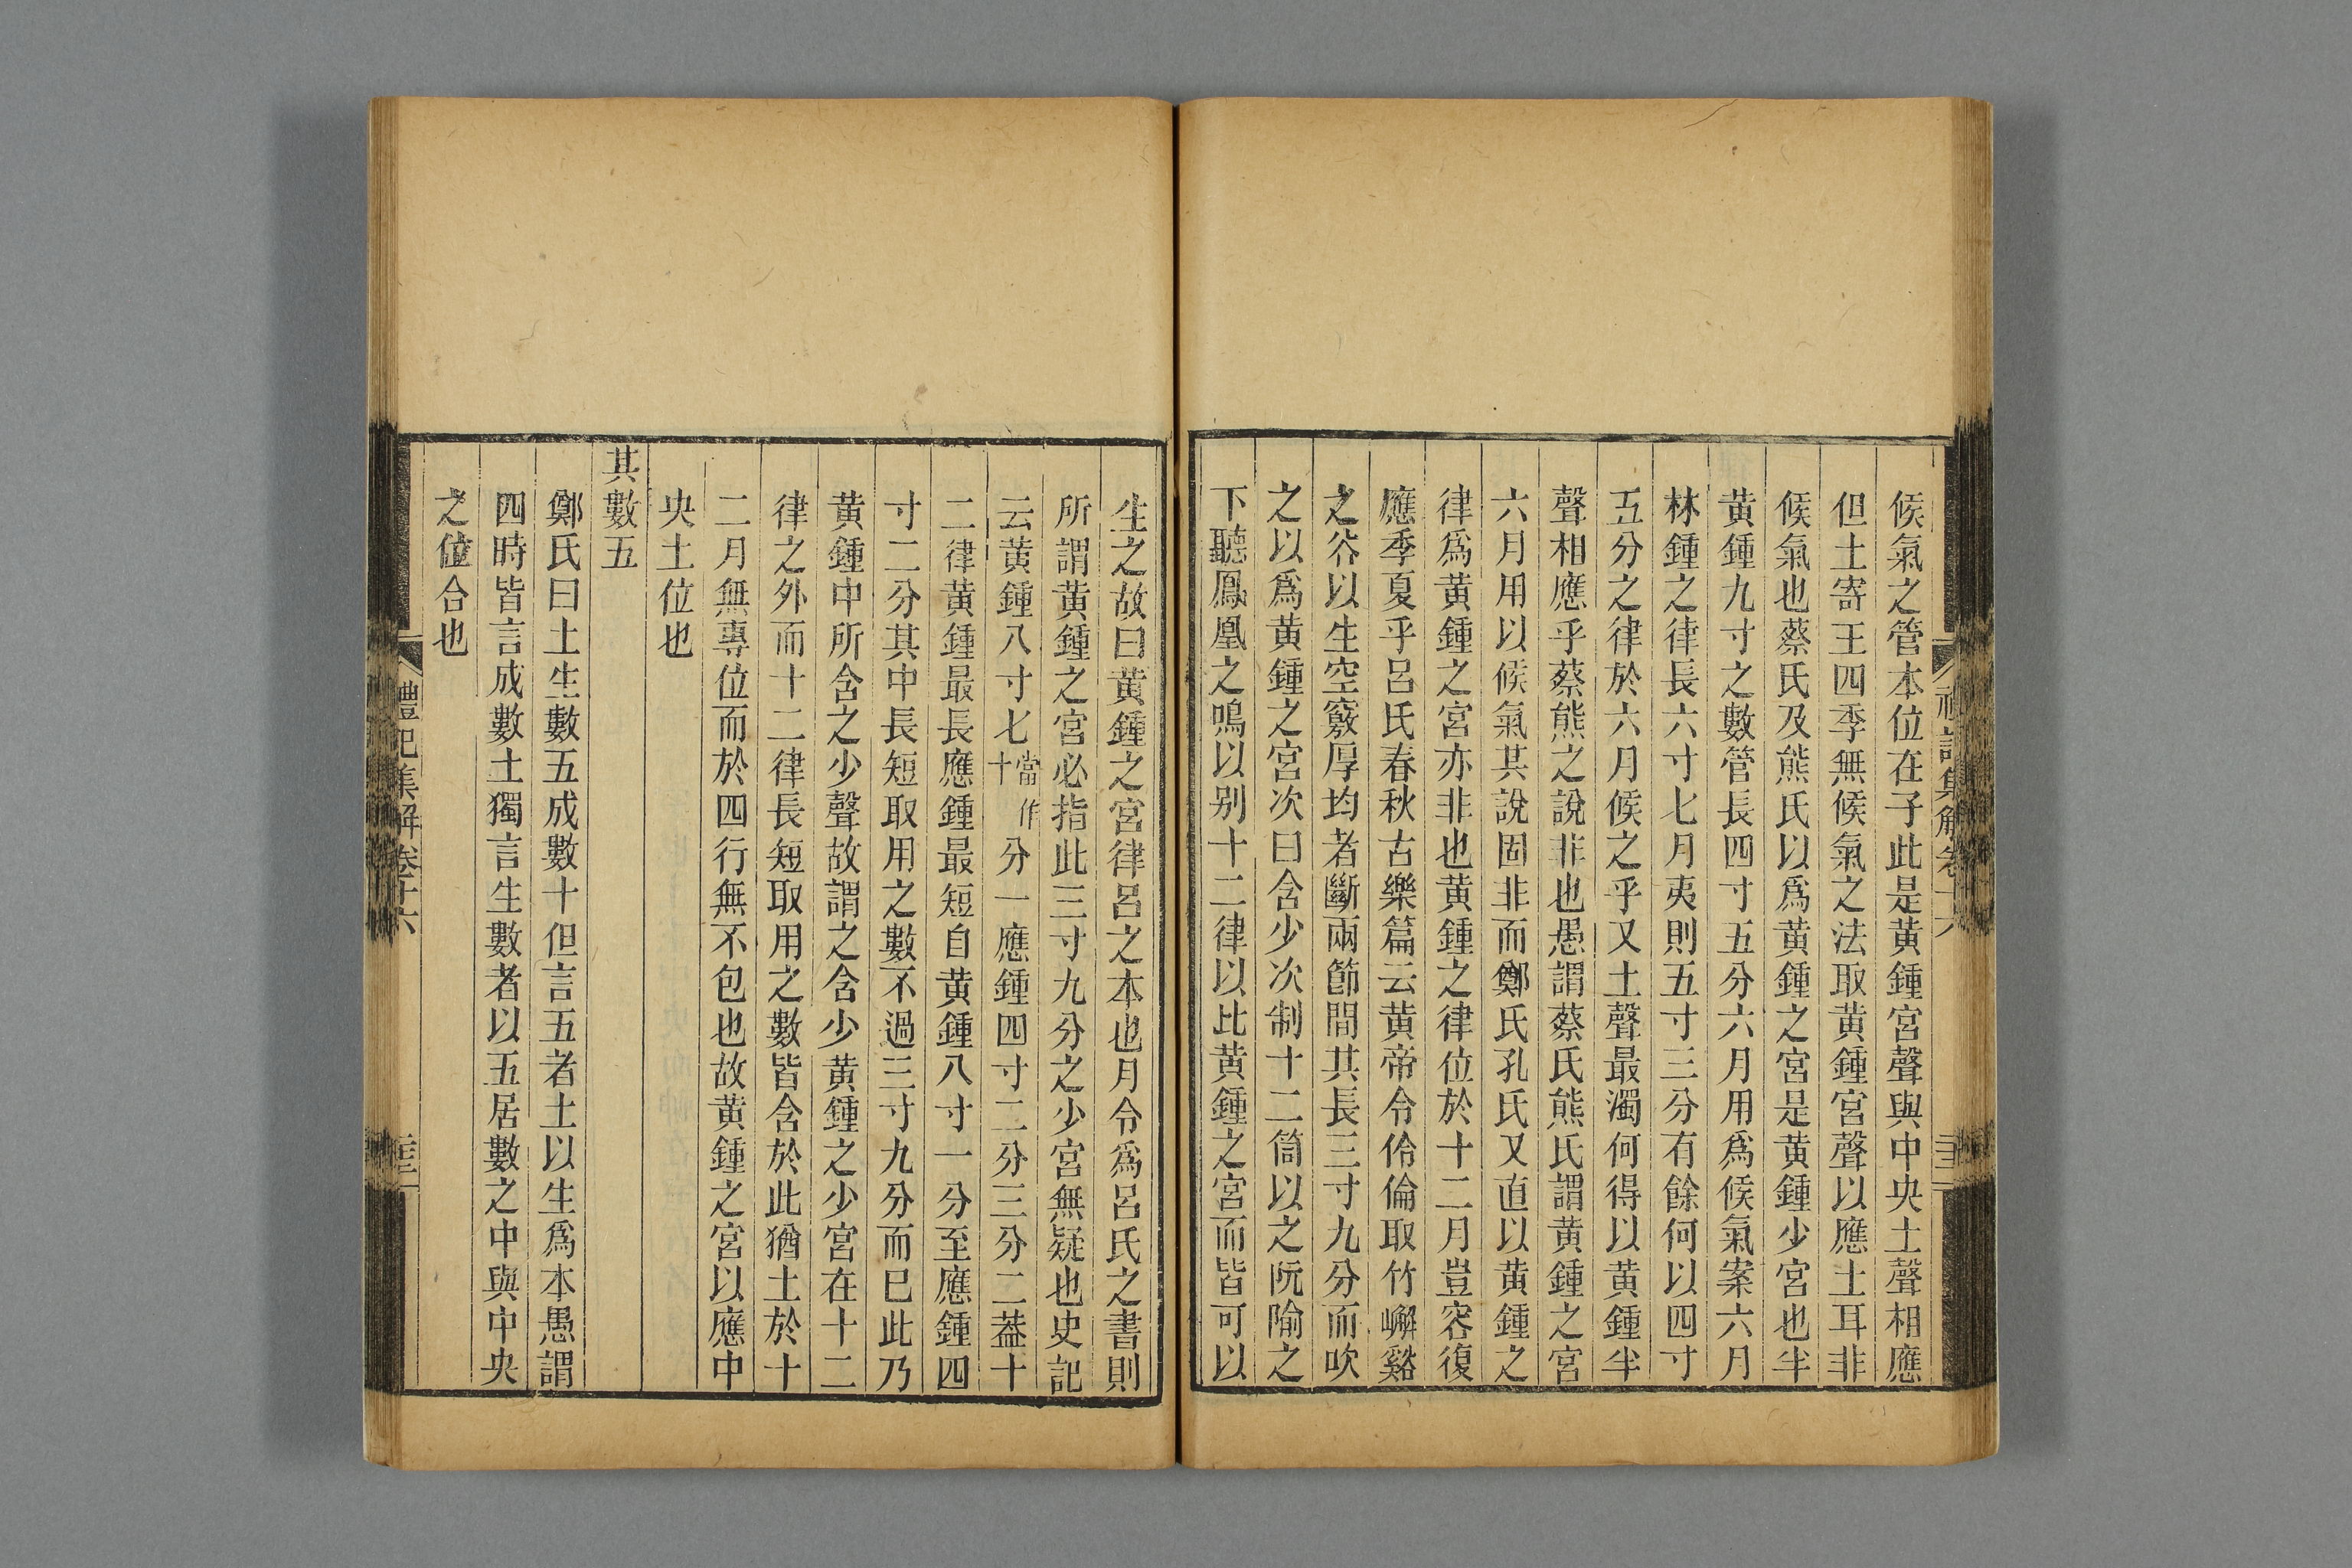 候氣之管本位在子此是黃鍾宮聲與中央土聲相應
但土寄王四季無候氣之法取黃鍾宮聲以應土耳非
候氣也蔡氏及熊氏以爲黃鍾之宮是黃鍾少宮也半
黃鍾九寸之數管長四寸五分六月用爲候氣案六月
林鍾之律長六寸七月夷則五寸三分有餘何以四寸
五分之律於六月候之乎又土聲最濁何得以黃鍾半
聲相應乎蔡熊之說非也愚謂蔡氏熊氏謂黃鍾之宮
六月用以候氣其說固非而鄭氏孔氏又直以黃鍾之
律爲黃鍾之宮亦非也黃鍾之律位於十二月豈容復
應季夏乎呂氏春秋古樂篇云黃帝令伶倫取竹嶰谿
之谷以生空竅厚均者斷兩節間其長三寸九分而吹
之以爲黃鍾之宮次曰含少次制十二筒以之阮隃之
下聽鳳凰之鳴以别十二律以比黃鍾之宮而皆可以
生之故曰黃鍾之宮律呂之本也月令爲呂氏之書則
所謂黃鍾之宮必指此三寸九分之少宮無疑也史記
云黃鍾八寸七當作十分一應鍾四寸二分三分二葢十
二律黃鍾最長應鍾最短自黃鍾八寸一分至應鍾四
寸二分其中長短取用之數不過三寸九分而已此乃
黃鍾中所含之少聲故謂之含少黃鍾之少宮在十二
律之外而十二律長短取用之數皆含於此猶土於十
二月無專位而於四行無不包也故黃鍾之宮以應中
央土位也
其數五
鄭氏曰土生數五成數十但言五者土以生爲本愚謂
四時皆言成數土獨言生數者以五居數之中與中央
之位合也
禮記集解卷十六